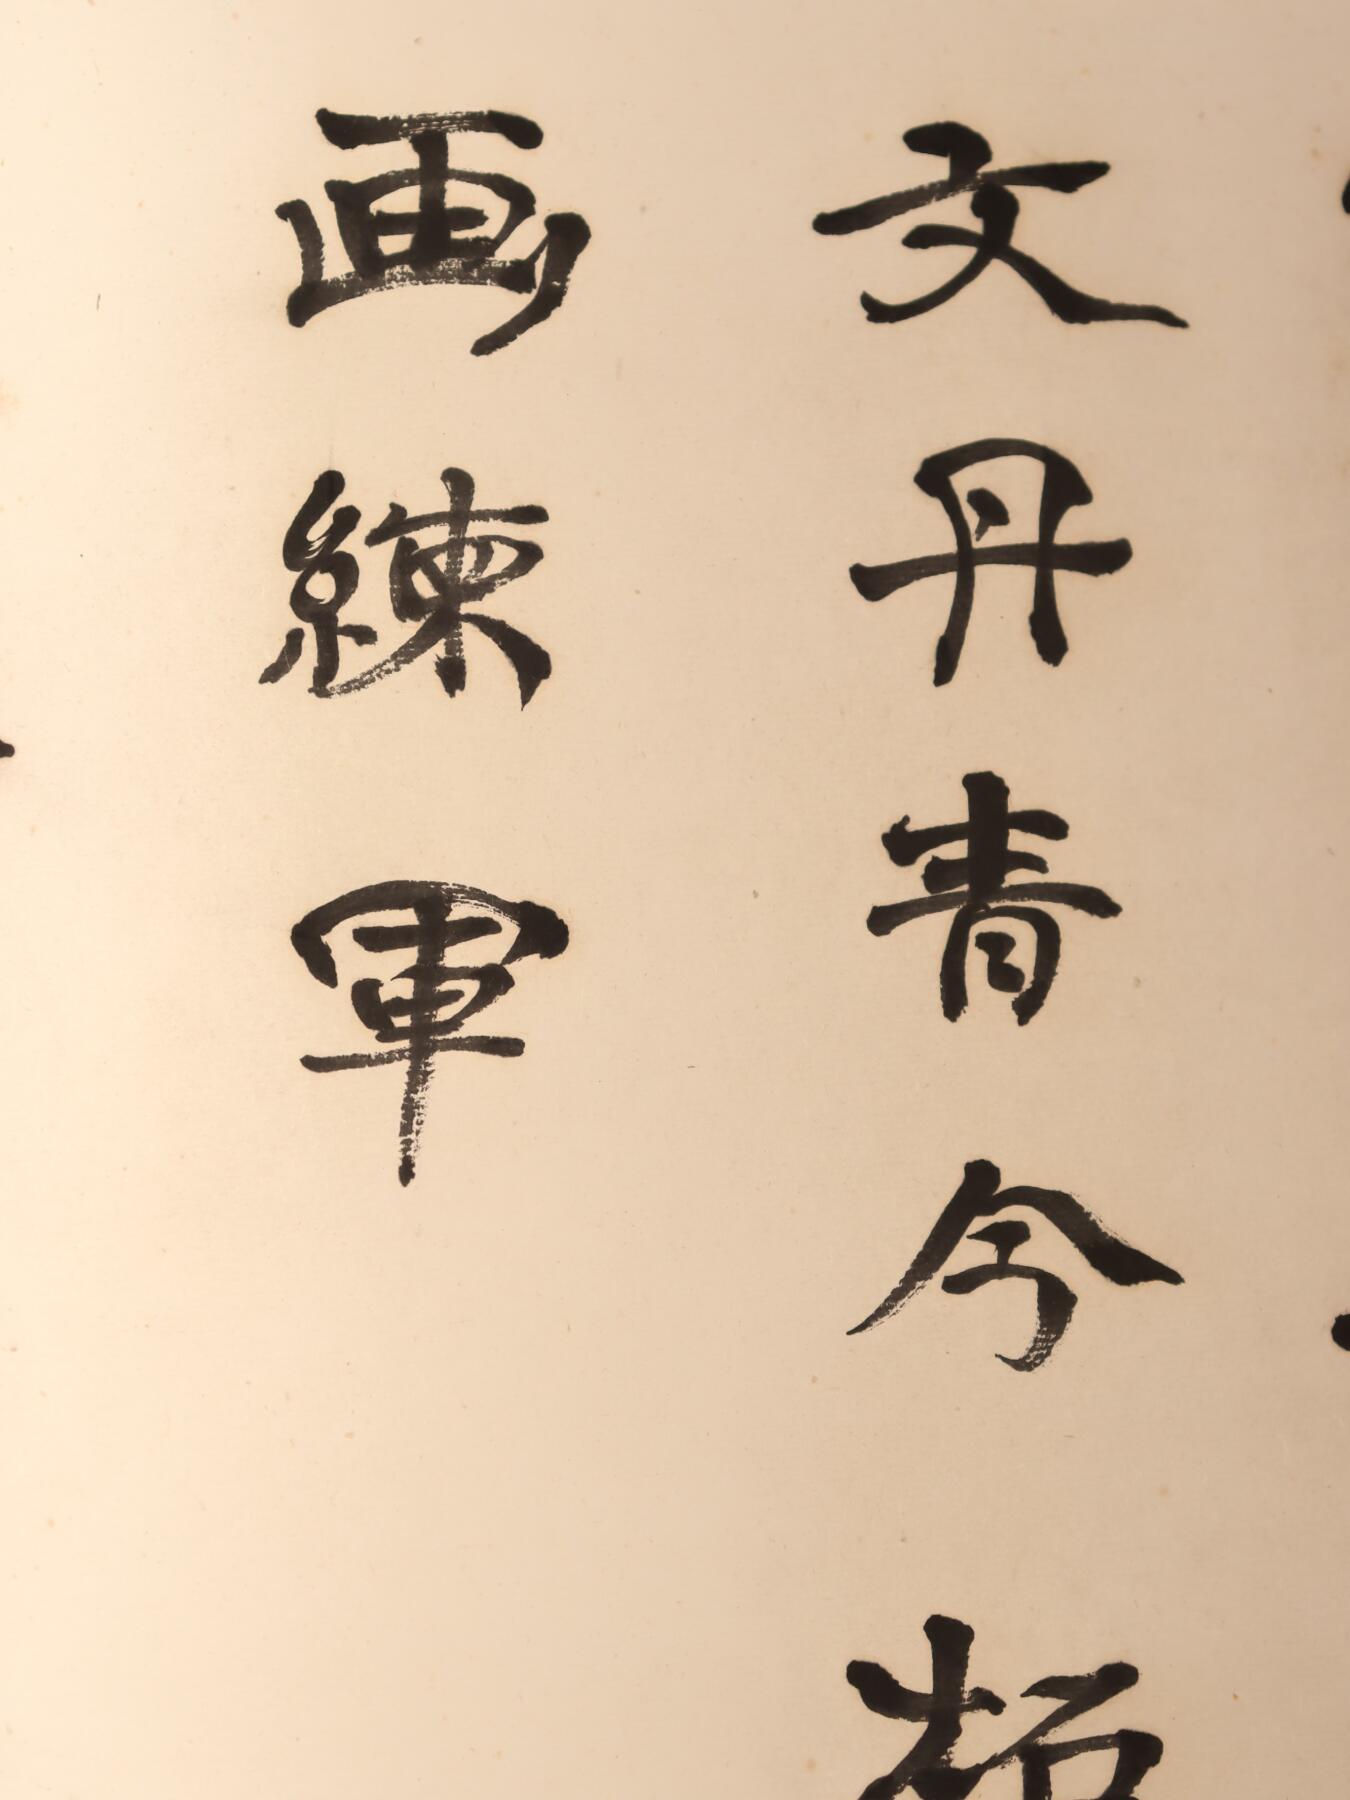 文丹青今
画練軍